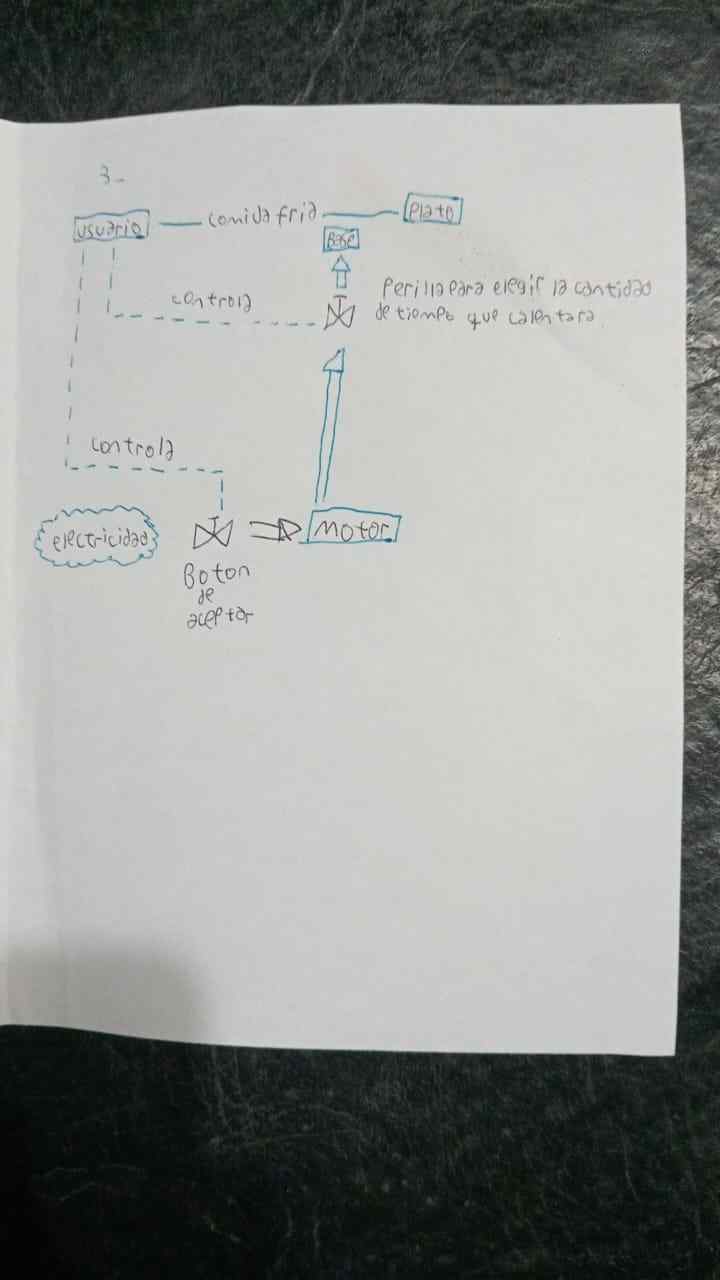 3-
usuario
comida fria
Plato
Base
controla
Perilla para elegir la cantidad
de tiempo que calentara
controla
electricidad
Motor
Boton
de
aceptar